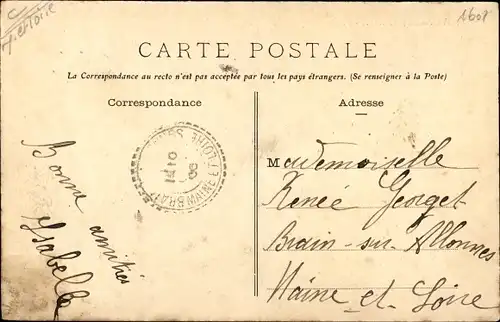 1608
CARTE POSTALE
La Correspondance au recto n'est pas acceptée par tous les pays étrangers. (Se renseigner à la Poste)
Correspondance
Adresse
Bonne amitiés
Ysabelle
Mademoiselle
Renée Georget
Brain-sur-Allonnes
Maine-et-Loire